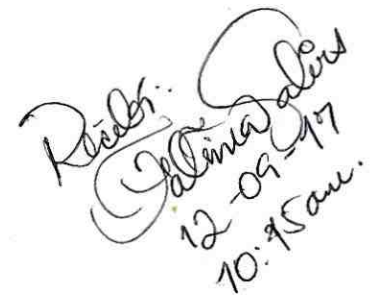 Recibí:
Fatima Galeas
12-09-17
10:45 am.